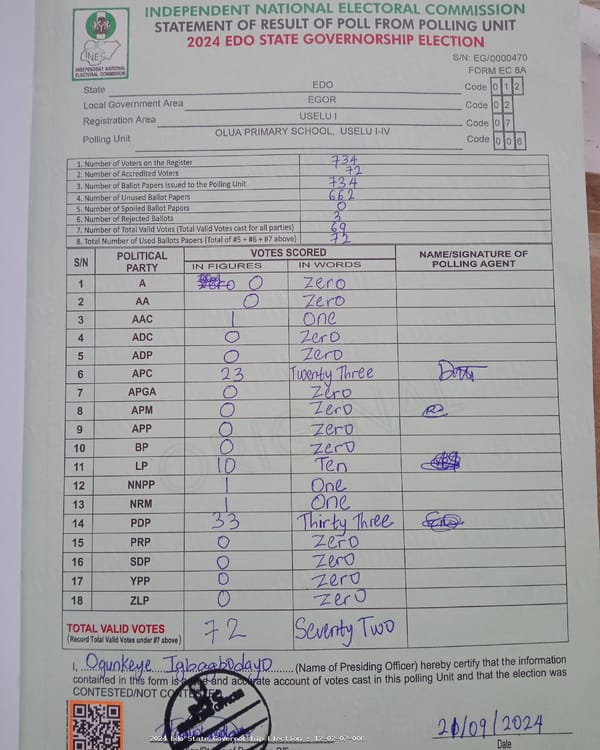 INDEPENDENT NATIONAL ELECTORAL COMMISSION
STATEMENT OF RESULT OF POLL FROM POLLING UNIT
2024 EDO STATE GOVERNORSHIP ELECTION
INEC
INDEPENDENT NATIONAL
ELECTORAL COMMISSION
S/N: EG/0000470
FORM EC 8A
State EDO Code 0 1 2
Local Government Area EGOR Code 0 2
Registration Area USELU I Code 0 7
Polling Unit OLUA PRIMARY SCHOOL, USELU I-IV Code 0 0 6
1. Number of Voters on the Register 734
2. Number of Accredited Voters 72
3. Number of Ballot Papers Issued to the Polling Unit 734
4. Number of Unused Ballot Papers 662
5. Number of Spoiled Ballot Papers 0
6. Number of Rejected Ballots 3
7. Number of Total Valid Votes (Total Valid Votes cast for all parties) 69
8. Total Number of Used Ballots Papers (Total of #5 + #6 + #7 above) 72
S/N POLITICAL PARTY VOTES SCORED NAME/SIGNATURE OF POLLING AGENT
IN FIGURES IN WORDS
1 A 0 Zero
2 AA 0 Zero
3 AAC 1 One
4 ADC 0 Zero
5 ADP 0 Zero
6 APC 23 Twenty Three
7 APGA 0 Zero
8 APM 0 Zero
9 APP 0 Zero
10 BP 0 Zero
11 LP 10 Ten
12 NNPP 1 One
13 NRM 1 One
14 PDP 33 Thirty Three
15 PRP 0 Zero
16 SDP 0 Zero
17 YPP 0 Zero
18 ZLP 0 Zero
TOTAL VALID VOTES 72 Seventy Two
(Record Total Valid Votes under #7 above)
I, Ogunkeye Igbagbodayo (Name of Presiding Officer) hereby certify that the information
contained in this form is a and accurate account of votes cast in this polling Unit and that the election was
CONTESTED/NOT
21/09/2024
Date
2024 Edo State Governorship Election - 12-02-07-006